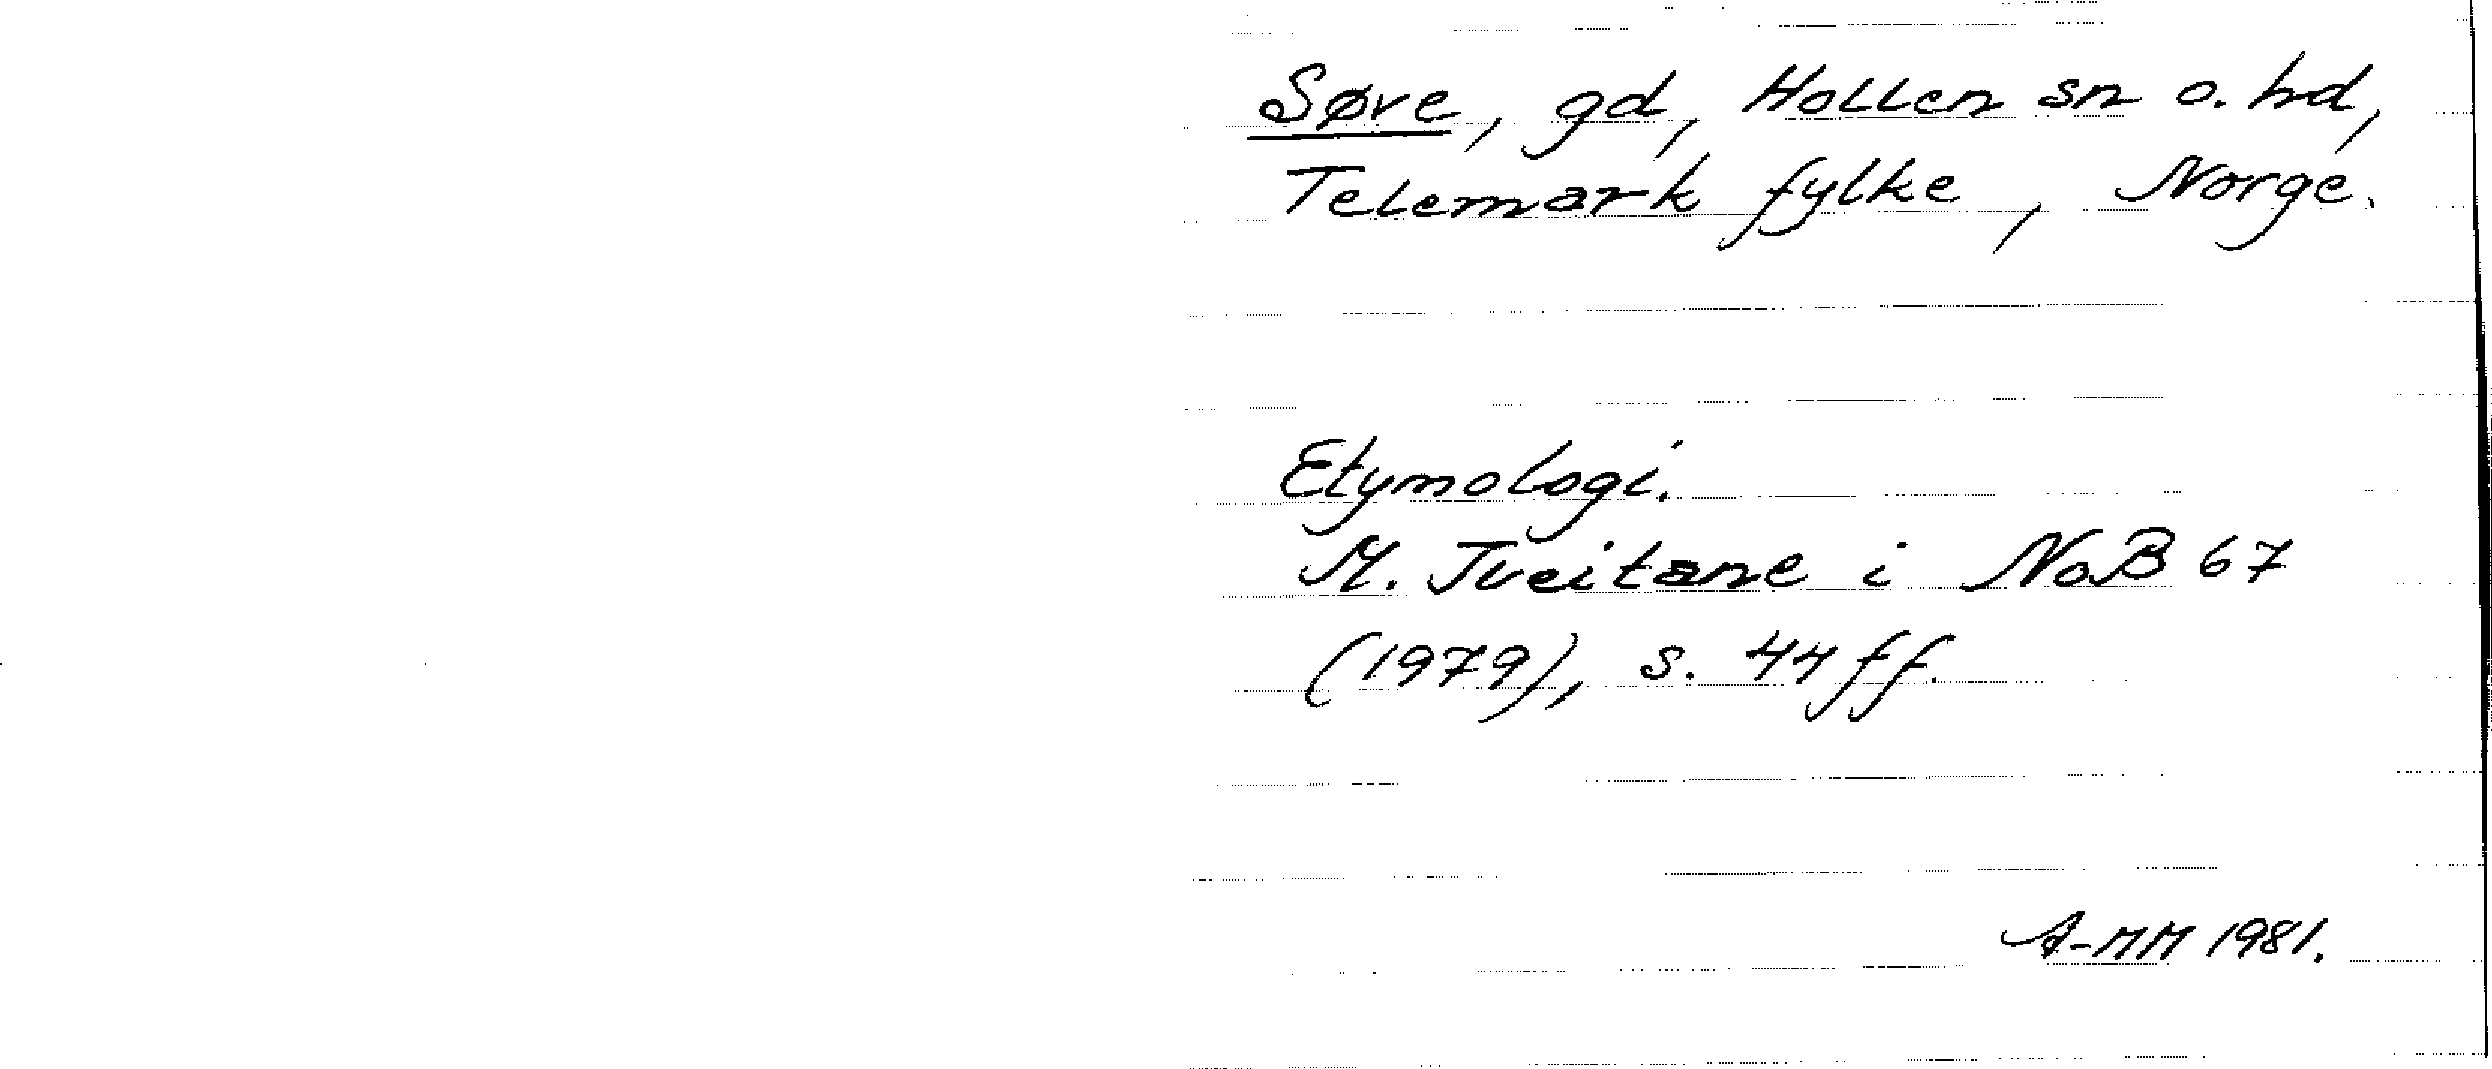 Søve, gd, Hollen sn o. hd,
Telemark fylke, Norge.
Etymologi.
M. Tveitane i NoB 67
(1979), s. 44 ff.
A-MM 1981.